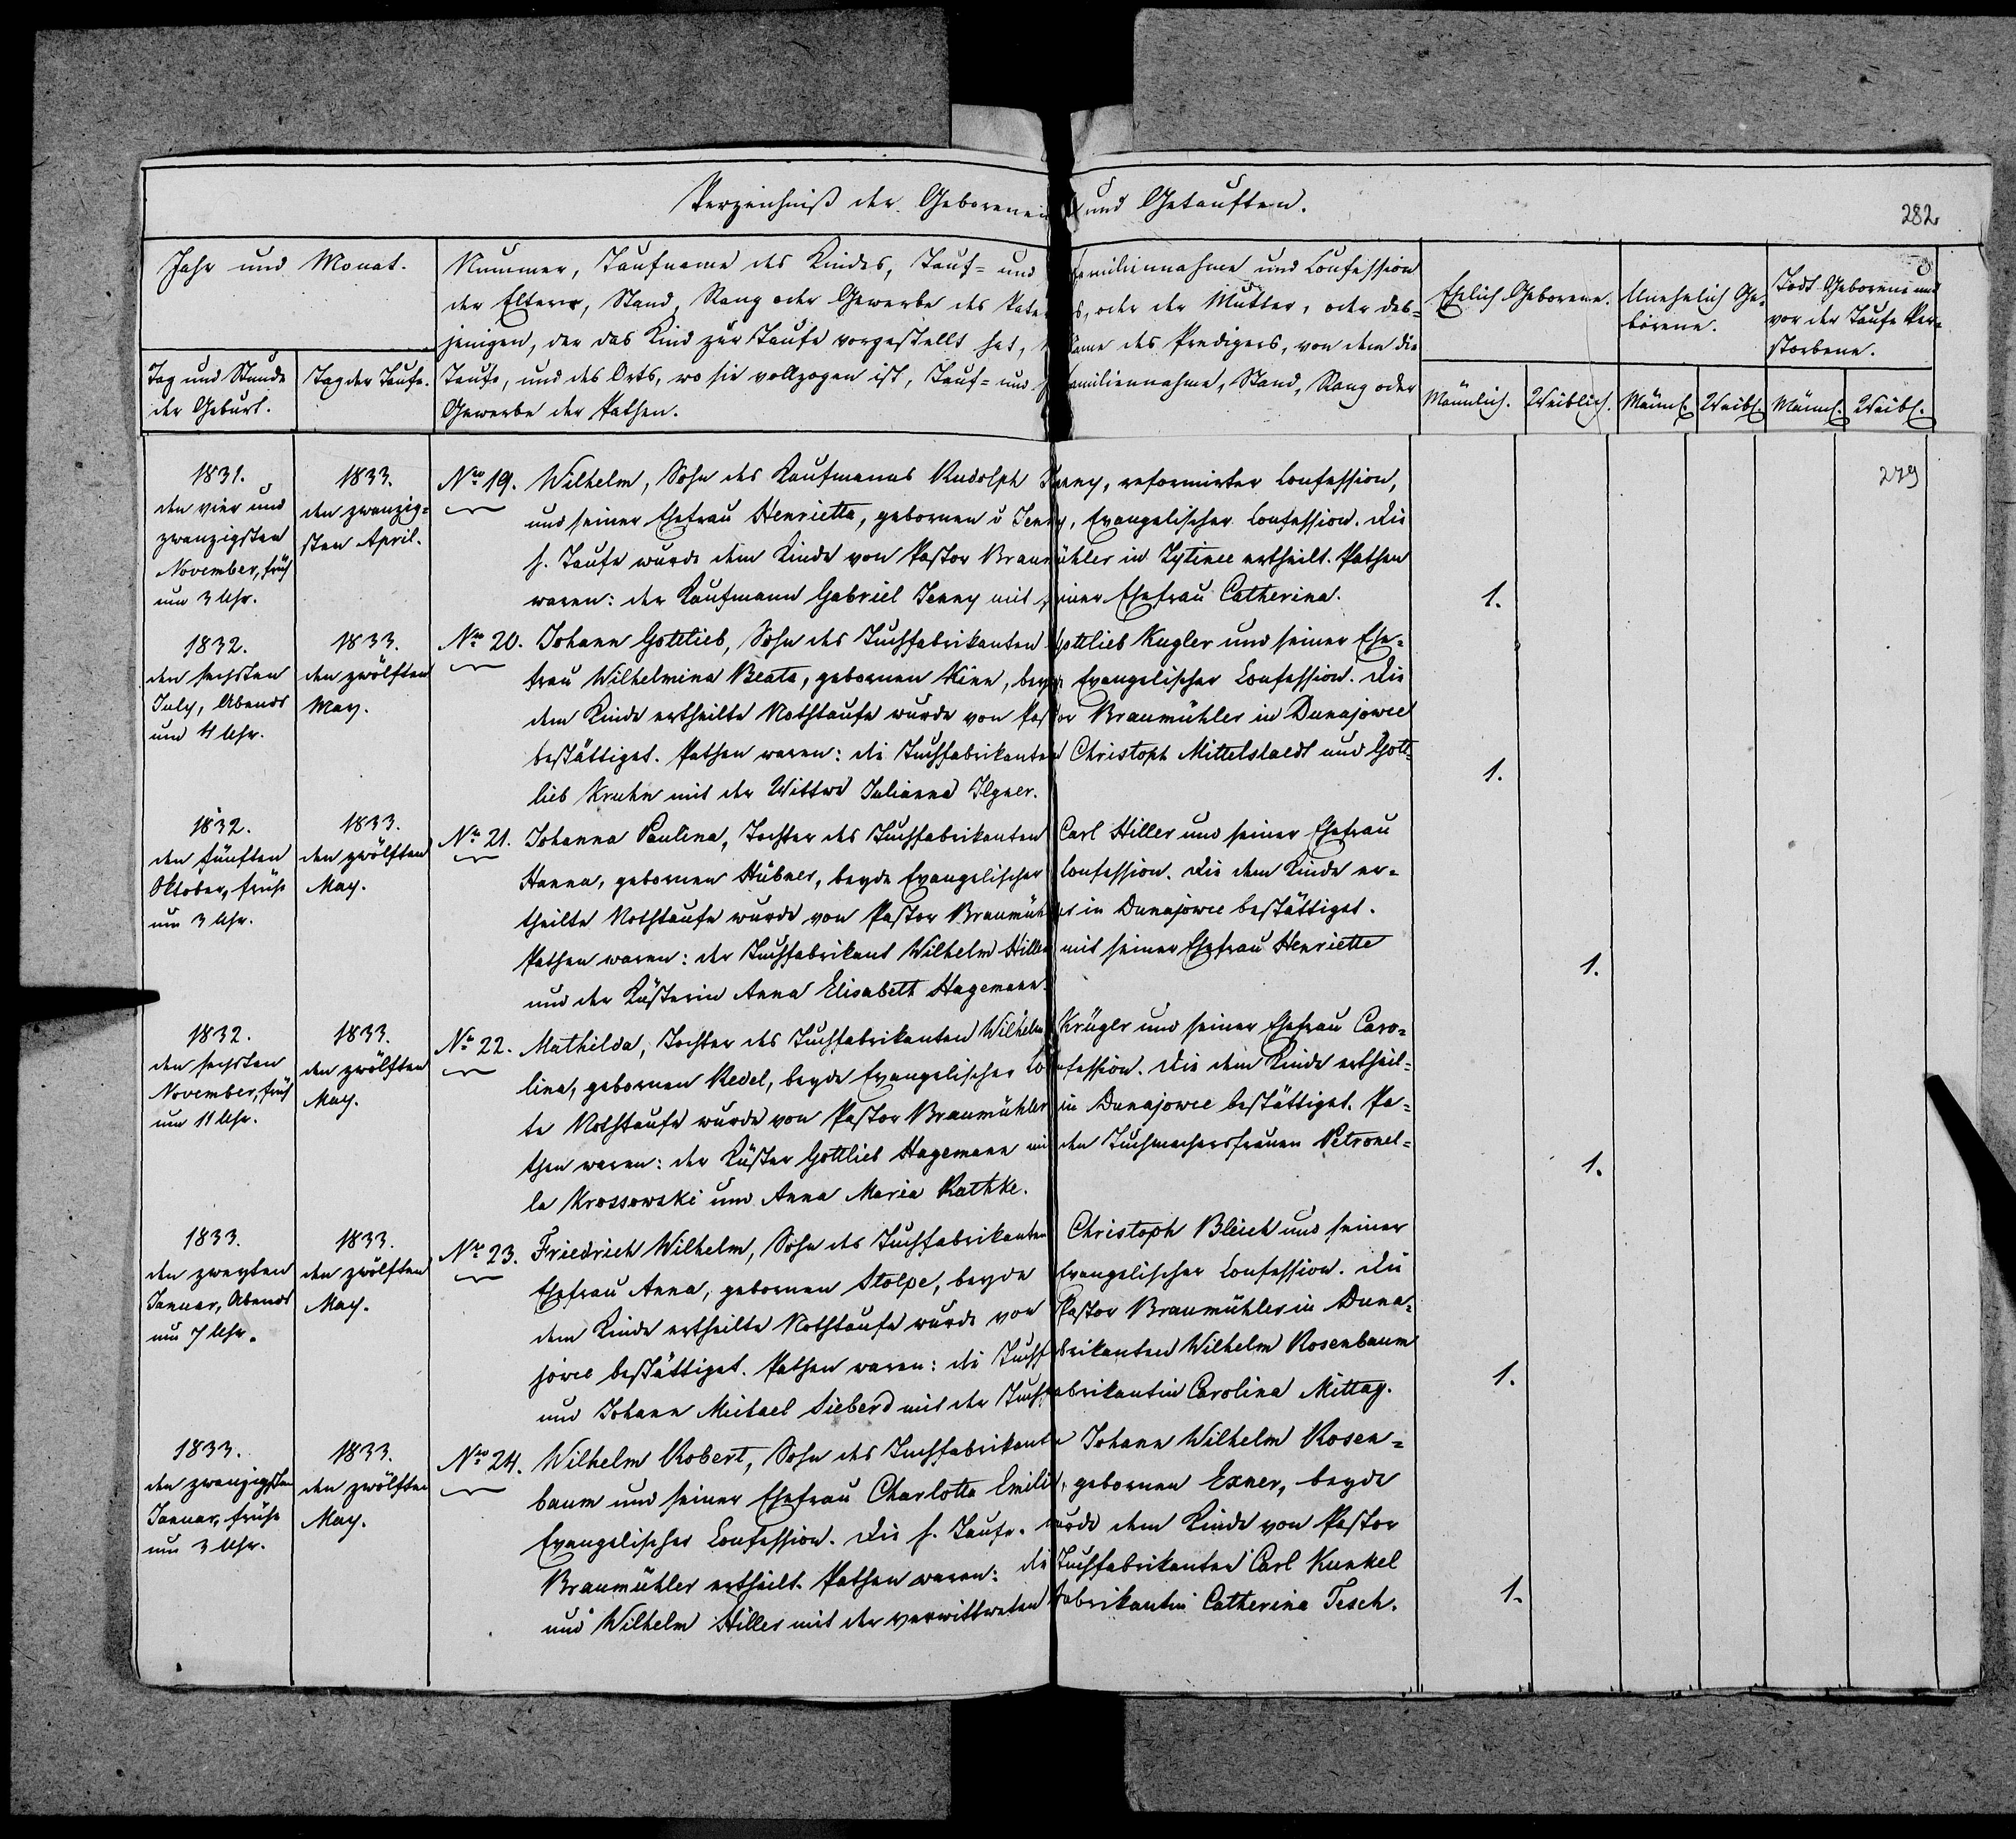 Verzeichniß der Geborenen und Getauften.
282
Jahr und Monat.
Tag und Stunde der Geburt.
Tag der Taufe.
Nummer, Taufname des Kindes, Tauf= und Familiennahme und Confession
der Eltern, Stand, Rang oder Gewerbe des Vaters, oder der Mutter, oder des=
jenigen, der das Kind zur Taufe vorgestellt hat, Name des Predigers, von dem die
Taufe, und des Orts, wo sie vollzogen ist, Tauf= und Familiennahme, Stand, Rang oder
Gewerbe der Pathen.
Ehelich Geborene.
Unehelich Ge=
borene.
Todt Geborene und
vor der Taufe Ver=
storbene.
Männlich. Weiblich. Männl. Weibl. Männl. Weibl.
279
1831.
den vier und
zwanzigsten
November, früh
um 3 Uhr.
1833.
den zwanzig=
sten April.
Nro 19. Wilhelm, Sohn des Kaufmanns Rudolph Jenny, reformirter Confession,
und seiner Ehefrau Henrietta, gebornen v Jenny, Evangelischer Confession. Die
h. Taufe wurde dem Kinde von Pastor Braumühler in Zytince ertheilt. Pathen
waren: der Kaufmann Gabriel Jenny mit seiner Ehefrau Catherina.
1.
1832.
den sechsten
July, Abends
um 4 Uhr.
1833.
den zwölften
May.
Nro 20. Johann Gottlieb, Sohn des Tuchfabrikanten Gottlieb Kugler und seiner Ehe=
frau Wilhelmina Beata, gebornen Kinn, beyde Evangelischer Confession. Die
dem Kinde ertheilte Nothtaufe wurde von Pastor Braumühler in Dunajowce
bestättiget. Pathen waren: die Tuchfabrikanten Christoph Mittelstaedt und Gott=
lieb Kruhn mit der Wittwe Julianna Ilgner.
1.
1832.
den fünften
Oktober, frühe
um 3 Uhr.
1833.
den zwölften
May.
Nro 21. Johanna Paulina, Tochter des Tuchfabrikanten Carl Hiller und seiner Ehefrau
Hanna, gebornen Hübner, beyde Evangelischer Confession. Die dem Kinde er=
theilte Nothtaufe wurde von Pastor Braumühler in Dunajowce bestättiget.
Pathen waren: der Tuchfabrikant Wilhelm Hiller mit seiner Ehefrau Henriette
und der Küsterin Anna Elisabeth Hagemann.
1.
1832.
den sechsten
November, früh
um 11 Uhr.
1833.
den zwölften
May.
Nro 22. Mathilda, Tochter des Tuchfabrikanten Wilhelm Krüger und seiner Ehefrau Caro=
lina, gebornen Redel, beyde Evangelischer Confession. Die dem Kinde ertheil=
te Nothtaufe wurde von Pastor Braumühler in Dunajowce bestättiget. Pa=
then waren: der Küster Gottlieb Hagemann mit den Tuchmachersfrauen Petronel=
la Krossowski und Anna Maria Rathke.
1.
1833.
den zweyten
Januar, Abends
um 7 Uhr.
1833.
den zwölften
May.
Nro 23. Friedrich Wilhelm, Sohn des Tuchfabrikanten Christoph Bleich und seiner
Ehefrau Anna, gebornen Stolpe, beyde Evangelischer Confession. Die
dem Kinde ertheilte Nothtaufe wurde von Pastor Braumühler in Duna=
jowce bestättiget. Pathen waren: die Tuchfabrikanten Wilhelm Rosenbaum
und Johann Michael Sieberd mit der Tuchfabrikantin Carolina Mittag.
1.
1833.
den zwanzigsten
Januar, frühe
um 3 Uhr.
1833.
den zwölften
May.
Nro 24. Wilhelm Robert, Sohn des Tuchfabrikanten Johann Wilhelm Rosen=
baum und seiner Ehefrau Charlotta Emilie, gebornen Exner, beyde
Evangelischer Confession. Die h. Taufe wurde dem Kinde von Pastor
Braumühler ertheilt. Pathen waren: die Tuchfabrikanten Carl Kunkel
und Wilhelm Hiller mit der verwittweten Fabrikantin Catherina Tesch.
1.